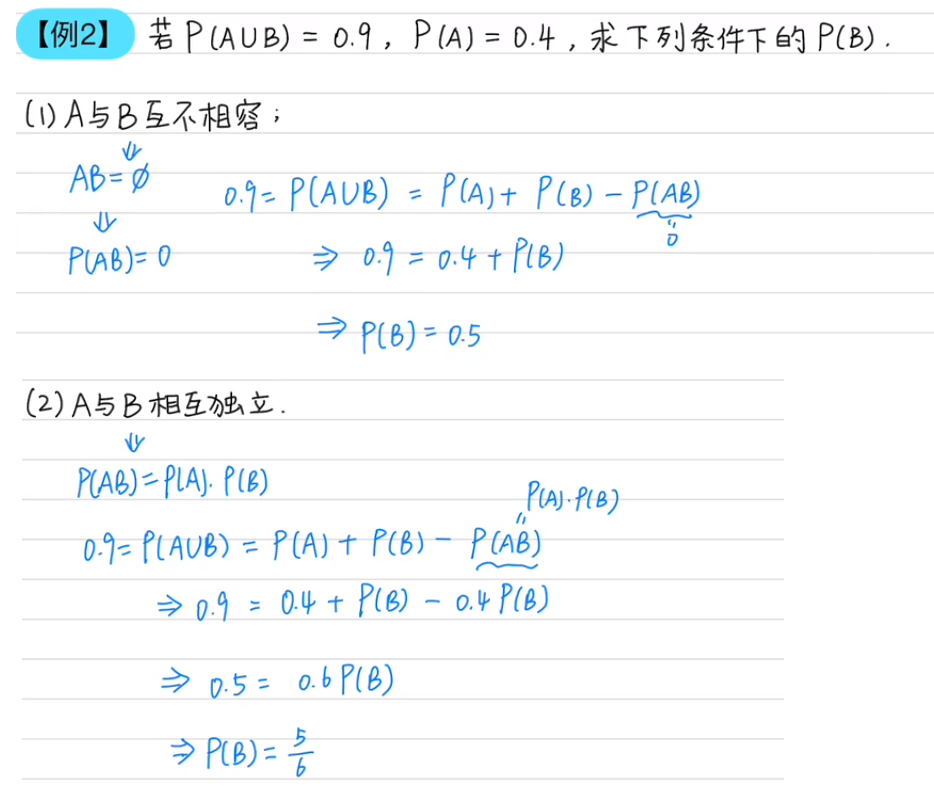 【例2】 若 P(A∪B) = 0.9, P(A) = 0.4, 求下列条件下的 P(B).
(1) A与B互不相容;
⇓
AB=∅
⇓
P(AB)=0
0.9= P(A∪B) = P(A)+ P(B) - P(AB)
"
0
⇒ 0.9 = 0.4 + P(B)
⇒ P(B) = 0.5
(2) A与B相互独立.
⇓
P(AB)=P(A)·P(B)
P(A)·P(B)
"
0.9= P(A∪B) = P(A) + P(B) - P(AB)
⇒ 0.9 = 0.4 + P(B) - 0.4 P(B)
⇒ 0.5 = 0.6 P(B)
⇒ P(B) = 5/6